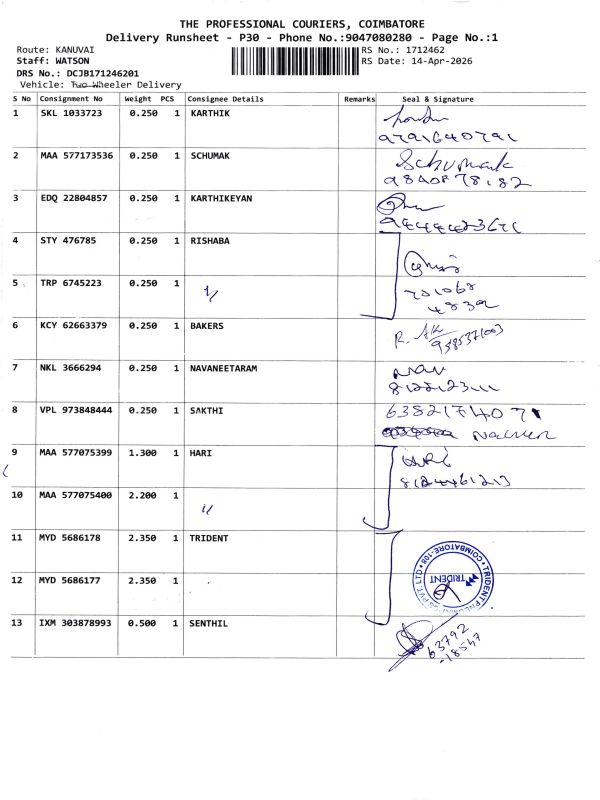 THE PROFESSIONAL COURIERS, COIMBATORE
Delivery Runsheet - P30 - Phone No.:9047080280 - Page No.:1
Route: KANUVAI RS No.: 1712462
Staff: WATSON RS Date: 14-Apr-2026
DRS No.: DCJB171246201
Vehicle: Two Wheeler Delivery
S No Consignment No Weight PCS Consignee Details Remarks Seal & Signature
1 SKL 1033723 0.250 1 KARTHIK
9791640791
2 MAA 577173536 0.250 1 SCHUMAK Schumak
9840878182
3 EDQ 22804857 0.250 1 KARTHIKEYAN
4 STY 476785 0.250 1 RISHABA
5 TRP 6745223 0.250 1 〃
701068
4839
6 KCY 62663379 0.250 1 BAKERS
7 NKL 3666294 0.250 1 NAVANEETARAM Nav
8 VPL 973848444 0.250 1 SAKTHI 6382174071
9 MAA 577075399 1.300 1 HARI HARI
8124461213
10 MAA 577075400 2.200 1 〃
11 MYD 5686178 2.350 1 TRIDENT
COIMBATORE-108
TRIDENT
12 MYD 5686177 2.350 1
13 IXM 303878993 0.500 1 SENTHIL
63792
18547